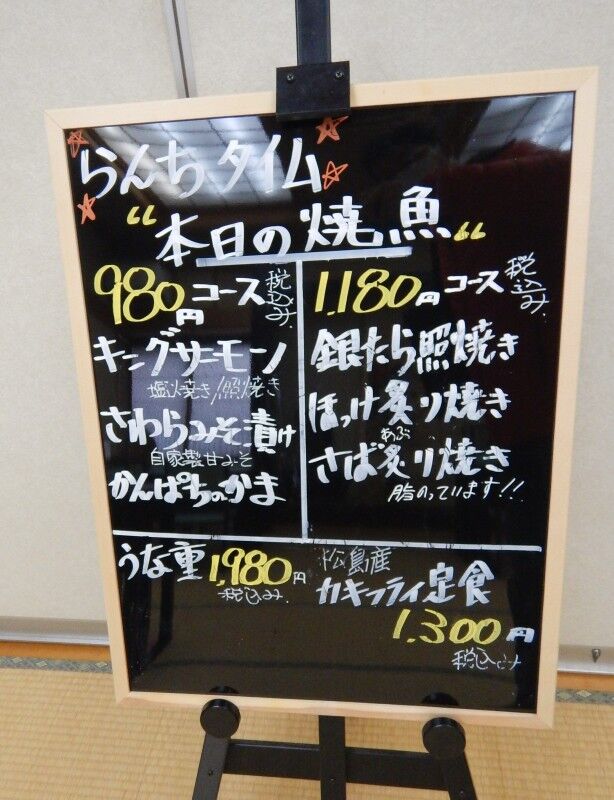 らんちタイム
“本日の焼魚“
980円コース税込み
キングサーモン
塩焼き/照焼き
さわらみそ漬け
自家製甘みそ
かんぱちのかま
1,180円コース税込み
銀たら照焼き
ほっけ炙り焼き
あぶ
さば炙り焼き
脂のっています!!
うな重1,980円
税込み
松島産
カキフライ定食
1,300円
税込み